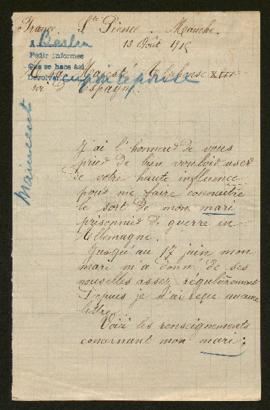 France. Ste Pience. Manche
13 Août 1915
Berlin
Pedir informes
Que se hace así
Devolver
Sa Majesté Alphonse XIII
roi d'Espagne.
J'ai l'honneur de vous
prier de bien vouloir user
de votre haute influence
pour me faire connaître
le sort de mon mari
prisonnier de guerre en
Allemagne.
Jusqu'au 17 juin mon
mari m'a donné de ses
nouvelles assez régulièrement
Depuis je n'ai reçu aucune
lettre.
Voici les renseignements
concernant mon mari: